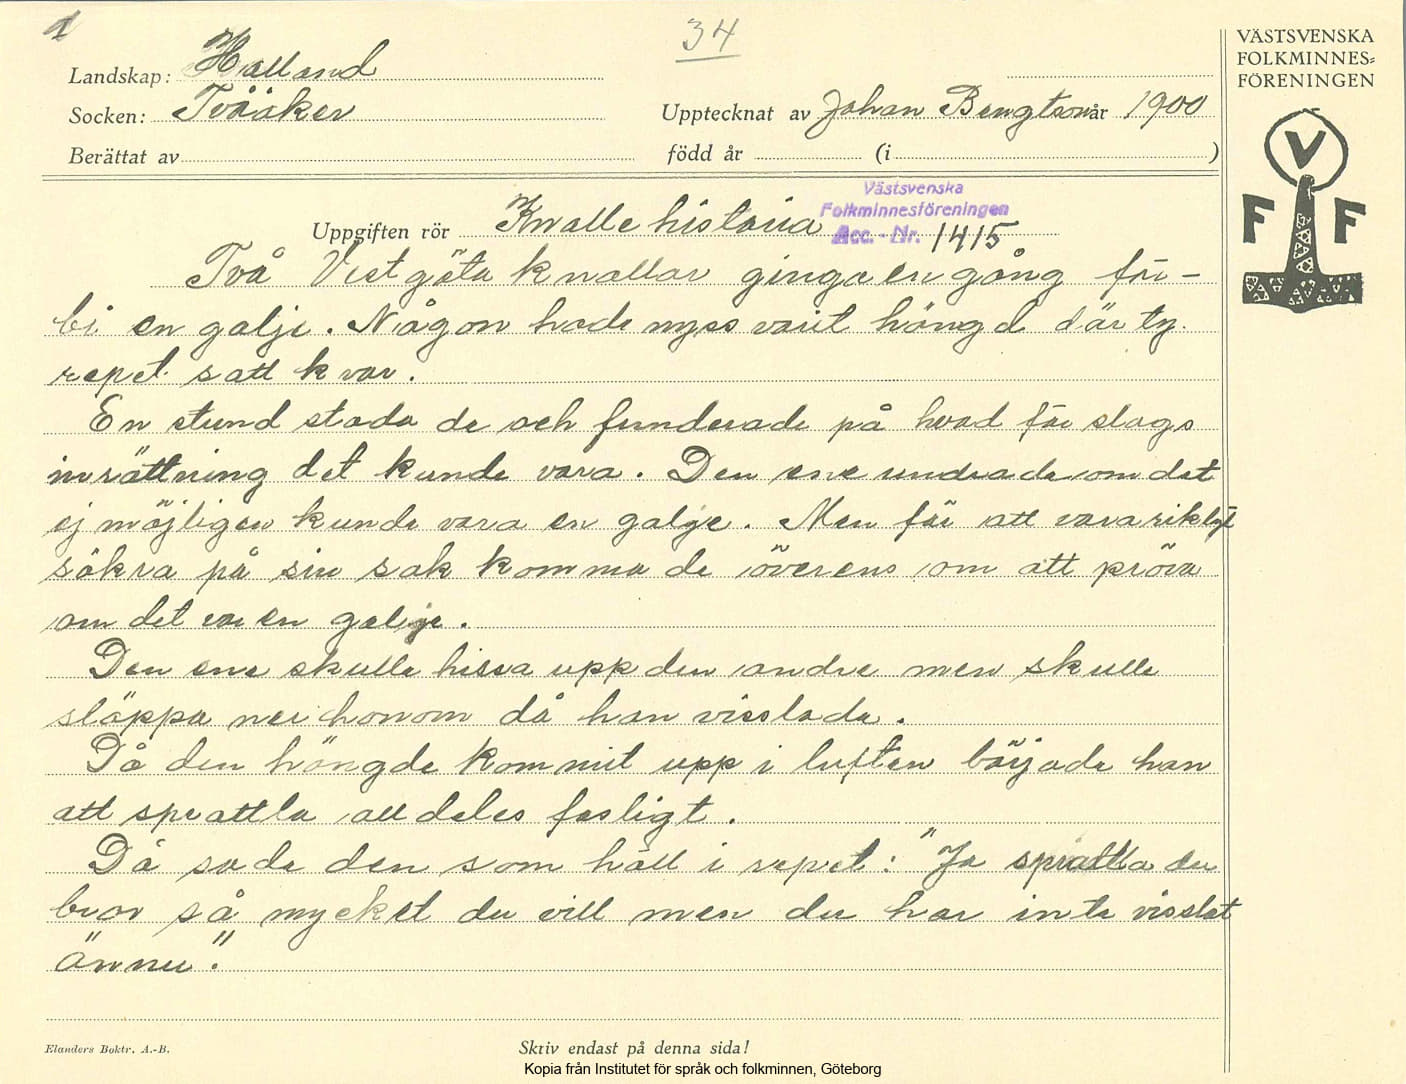 1
34
VÄSTSVENSKA
FOLKMINNES=
FÖRENINGEN
Landskap: Halland
Socken: Tvååker
Upptecknat av Johan Bengtson år 1900
Berättat av
född år (i )
V
F F
Västsvenska
Folkminnesföreningen
Acc. - Nr. 1415
Uppgiften rör Knallehistoria
Två Vestgöta knallar ginga en gång för-
bi en galje. Någon hade nyss varit hängd där ty
repet satt kvar.
En stund stoda de och funderade på hvad för slags
inrättning det kunde vara. Den ene undrade om det
ej möjligen kunde vara en galge. Men för att vara riktigt
säkra på sin sak komma de överens om att pröva
om det var en galge.
Den ene skulle hissa upp den andre men skulle
släppa ner honom då han visslade.
Då den hängde kommit upp i luften började han
att sprattla alldeles fasligt.
Då sade den som höll i repet: "Ja sprattla du
bror så mycket du vill men du har inte visslat
ännu."
Elanders Boktr. A.-B.
Skriv endast på denna sida!
Kopia från Institutet för språk och folkminnen, Göteborg